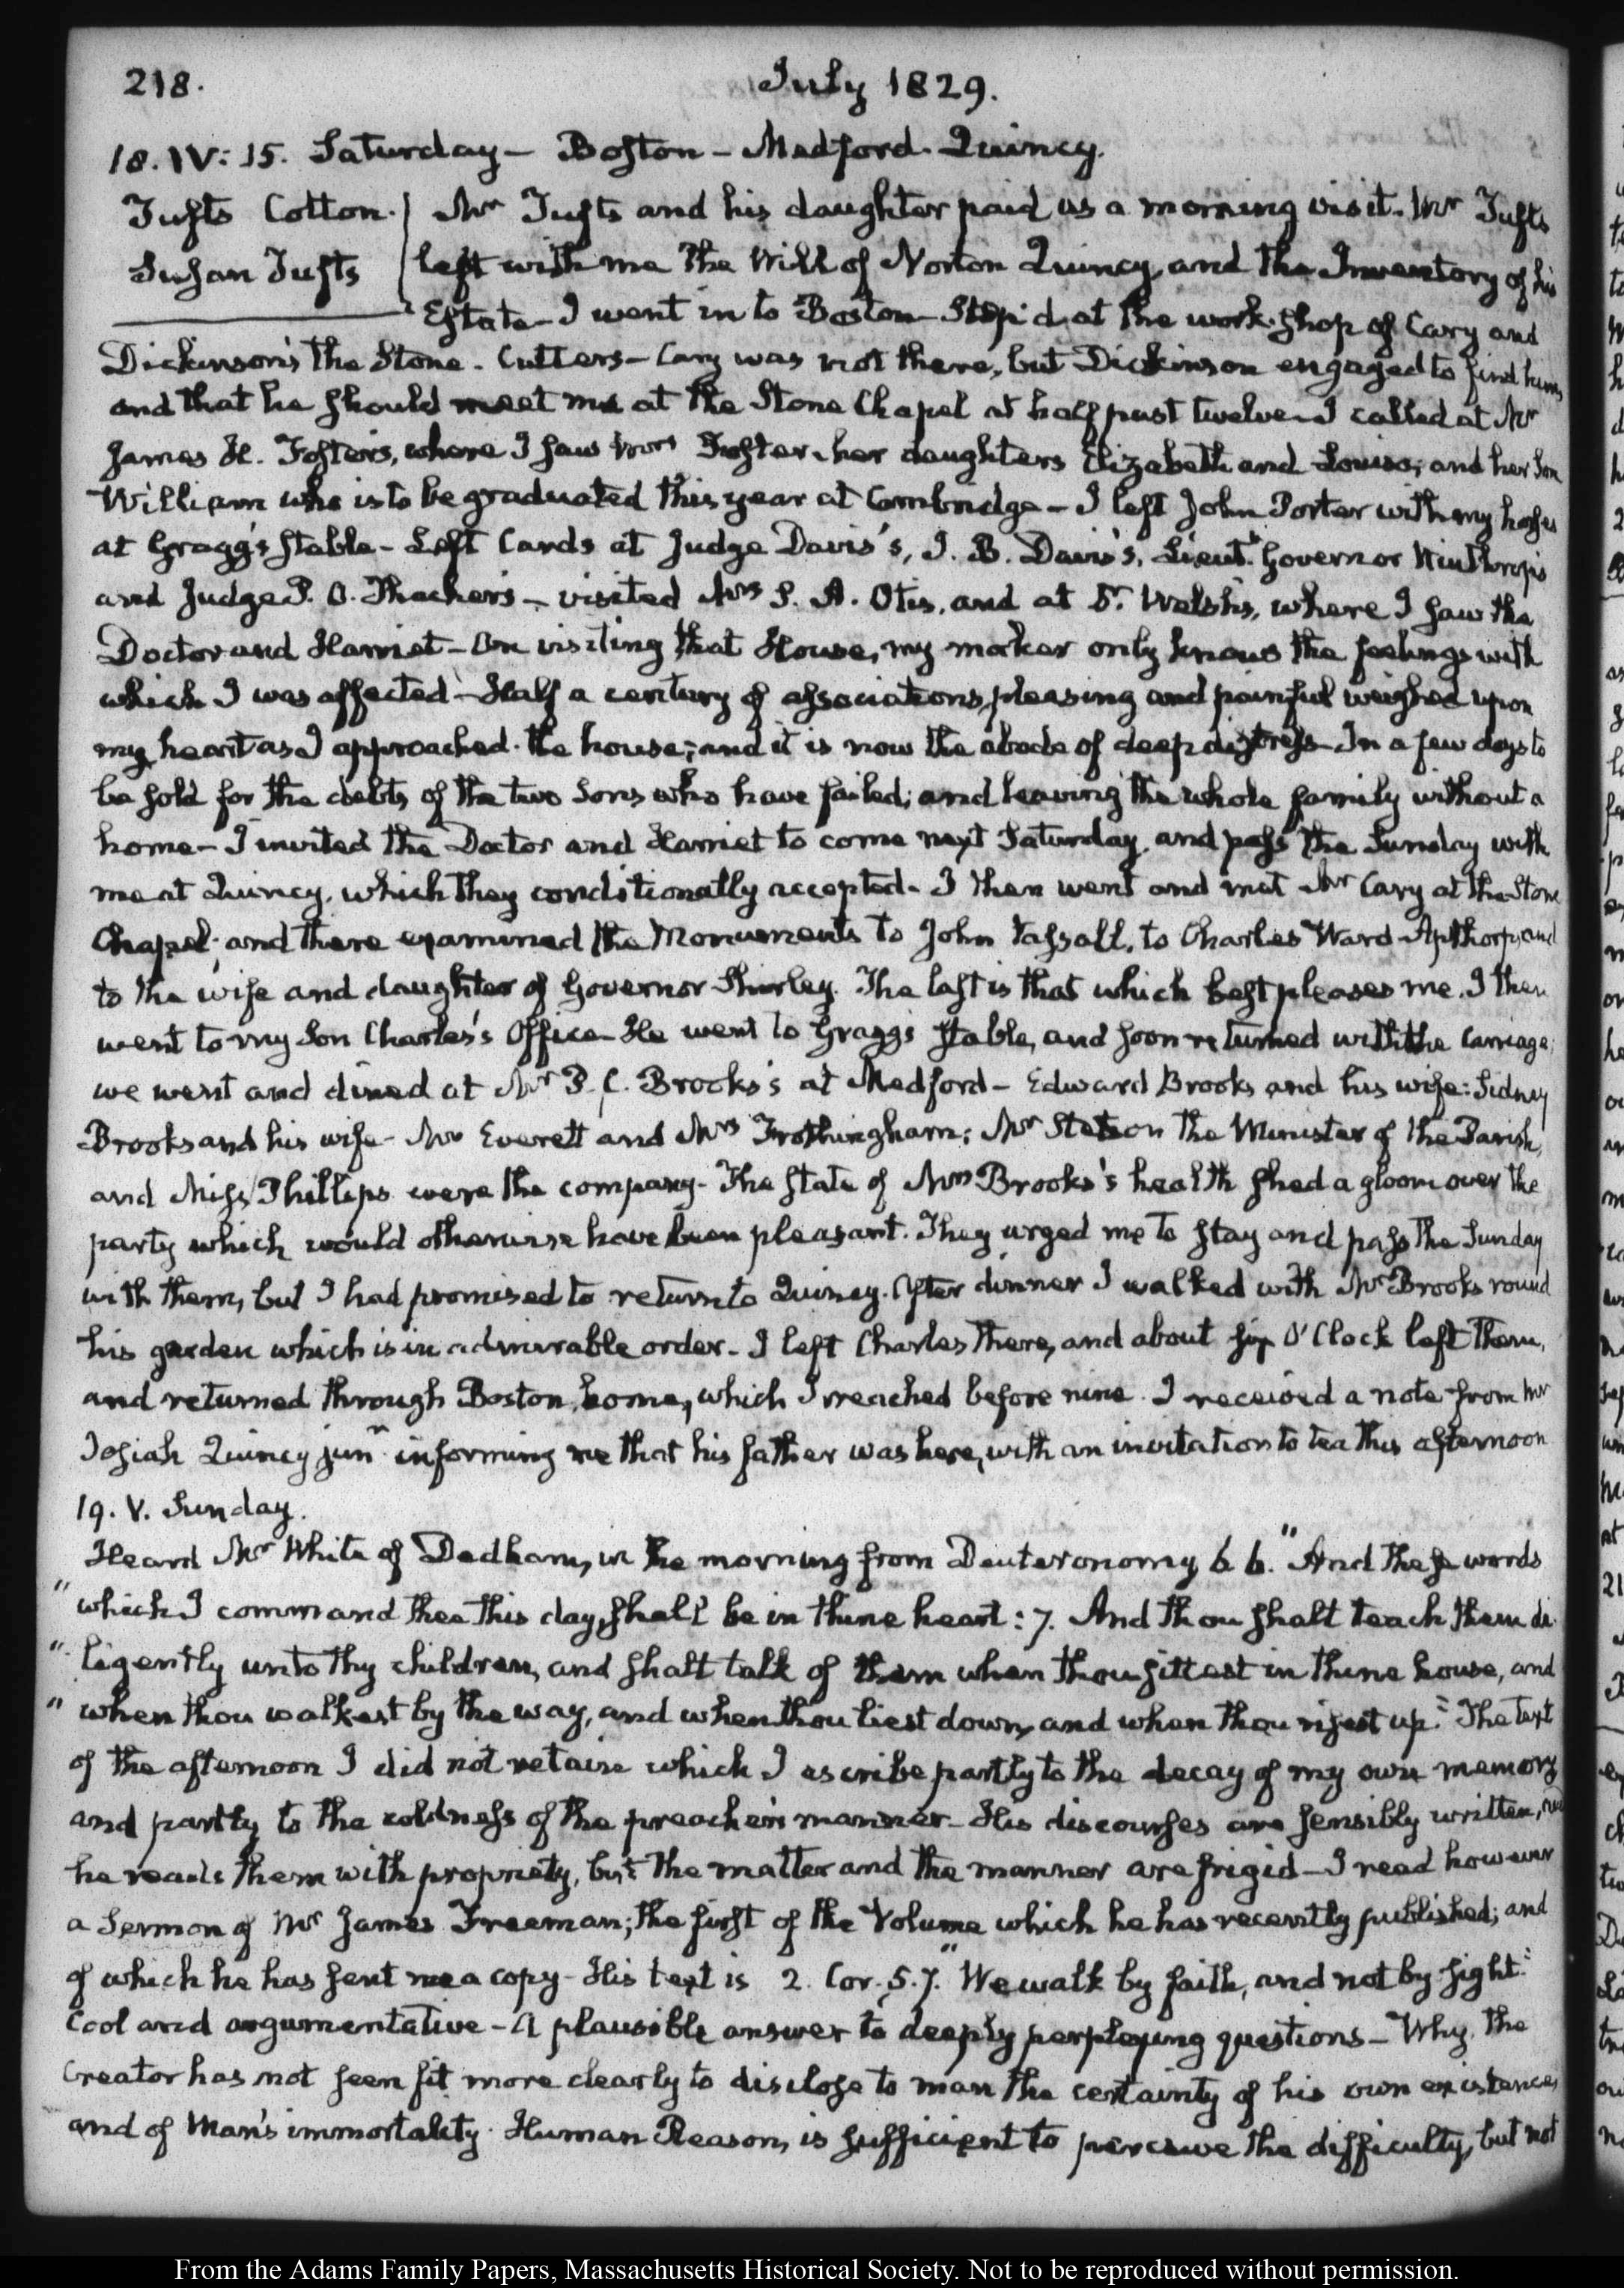 218.
July 1829.
18. IV: 15. Saturday — Boston — Medford. Quincy.
Tufts Cotton.
Susan Tufts
Mr Tufts and his daughter paid us a morning visit. Mr Tufts
left with me the Will of Norton Quincy, and the Inventory of his
Estate — I went in to Boston — Stop'd at the work-shop of Cary and
Dickinson's the Stone-Cutters — Cary was not there, but Dickinson engaged to find him,
and that he should meet me at the Stone Chapel at half past twelve — I called at Mr
James H. Foster's, where I saw Mrs Foster, her daughters Elizabeth and Louisa, and her Son
William who is to be graduated this year at Cambridge — I left John Porter with my horses
at Gragg's stable — Left Cards at Judge Davis's, I. B. Davis's, Lieutt Governor Winthrop's
and Judge P. O. Thacher's — visited Mrs S. A. Otis, and at Dr. Welsh's, where I saw the
Doctor and Harriet — On visiting that House, my maker only knows the feelings with
which I was affected — Half a century of associations, pleasing and painful weighed upon
my heart as I approached the house; and it is now the abode of deep distress — In a few days to
be sold for the debts of the two Sons who have failed; and leaving the whole family without a
home — I invited the Doctor and Harriet to come next Saturday, and pass the Sunday with
me at Quincy, which they conditionally accepted — I then went and met Mr Cary at the Stone
Chapel; and there examined the Monuments to John Vassall, to Charles Ward Apthorp, and
to the wife and daughter of Governor Shirley. The last is that which best pleases me. I then
went to my Son Charles's Office — He went to Gragg's stable, and soon returned with the carriage;
we went and dined at Mr P. C. Brooks's at Medford — Edward Brooks and his wife: Sidney
Brooks and his wife — Mr Everett and Mrs Frothingham; Mr Stetson the Minister of the Parish,
and Miss Phillips were the company — The state of Mrs Brooks's health shed a gloom over the
party which would otherwise have been pleasant. They urged me to stay and pass the Sunday
with them, but I had promised to return to Quincy. After dinner I walked with Mr Brooks round
his garden which is in admirable order — I left Charles there, and about six O'Clock left them,
and returned through Boston home, which I reached before nine. I received a note from Mr
Josiah Quincy junr informing me that his father was here, with an invitation to tea this afternoon
19. V. Sunday.
Heard Mr White of Dedham, in the morning from Deuteronomy 6 6. "And these words
" which I command thee this day, shall be in thine heart: 7. And thou shalt teach them di-
" ligently unto thy children, and shalt talk of them when thou sittest in thine house, and
" when thou walkest by the way, and when thou liest down, and when thou risest up." The text
of the afternoon I did not retain which I ascribe partly to the decay of my own memory
and partly to the coldness of the preacher's manner — His discourses are sensibly written, and
he reads them with propriety, but the matter and the manner are frigid — I read however
a Sermon of Mr James Freeman; the first of the Volume which he has recently published; and
of which he has sent me a copy — His text is 2. Cor. 5. 7. "We walk by faith, and not by sight."
Cool and argumentative — A plausible answer to deeply perplexing questions — Why the
Creator has not seen fit more clearly to disclose to man the certainty of his own existence,
and of Man's immortality. Human Reason, is sufficient to perceive the difficulty, but not
From the Adams Family Papers, Massachusetts Historical Society. Not to be reproduced without permission.